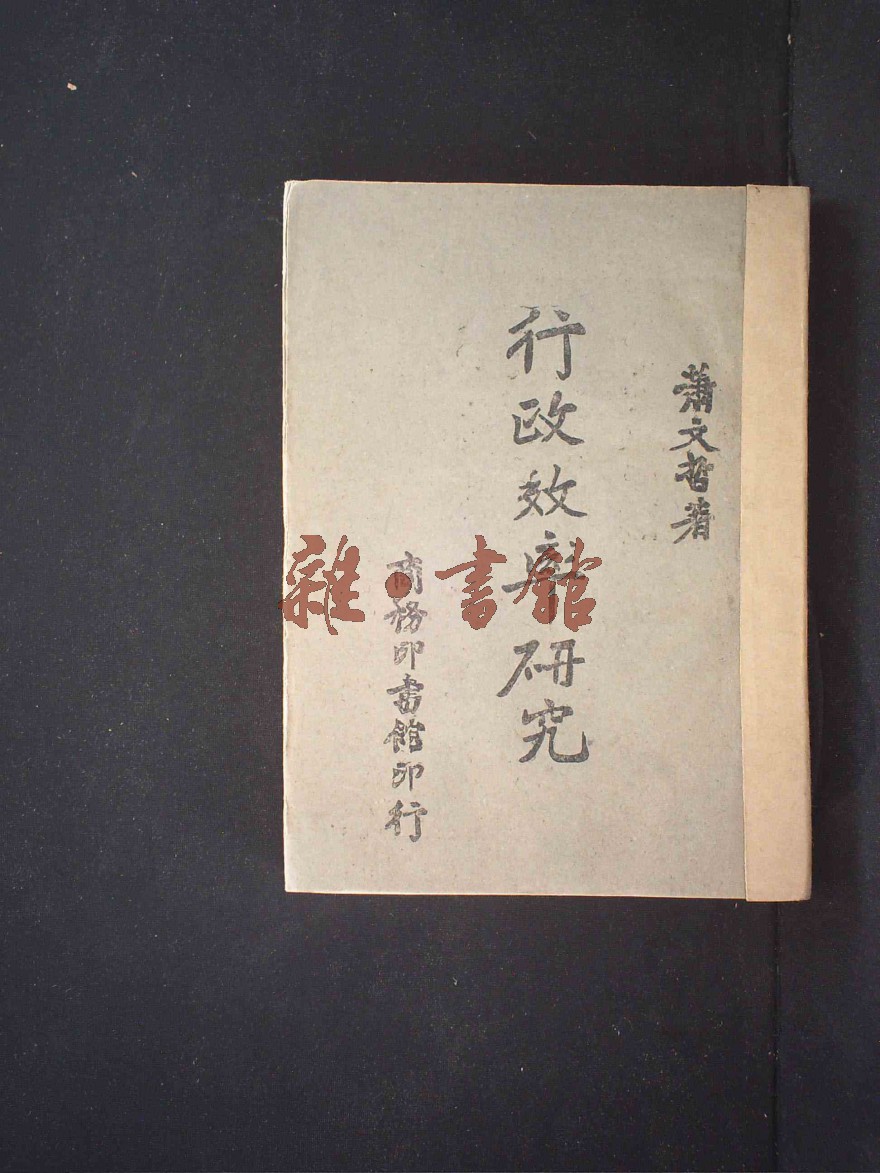 蕭文哲著
行政效率研究
商務印書館印行
雜·書館